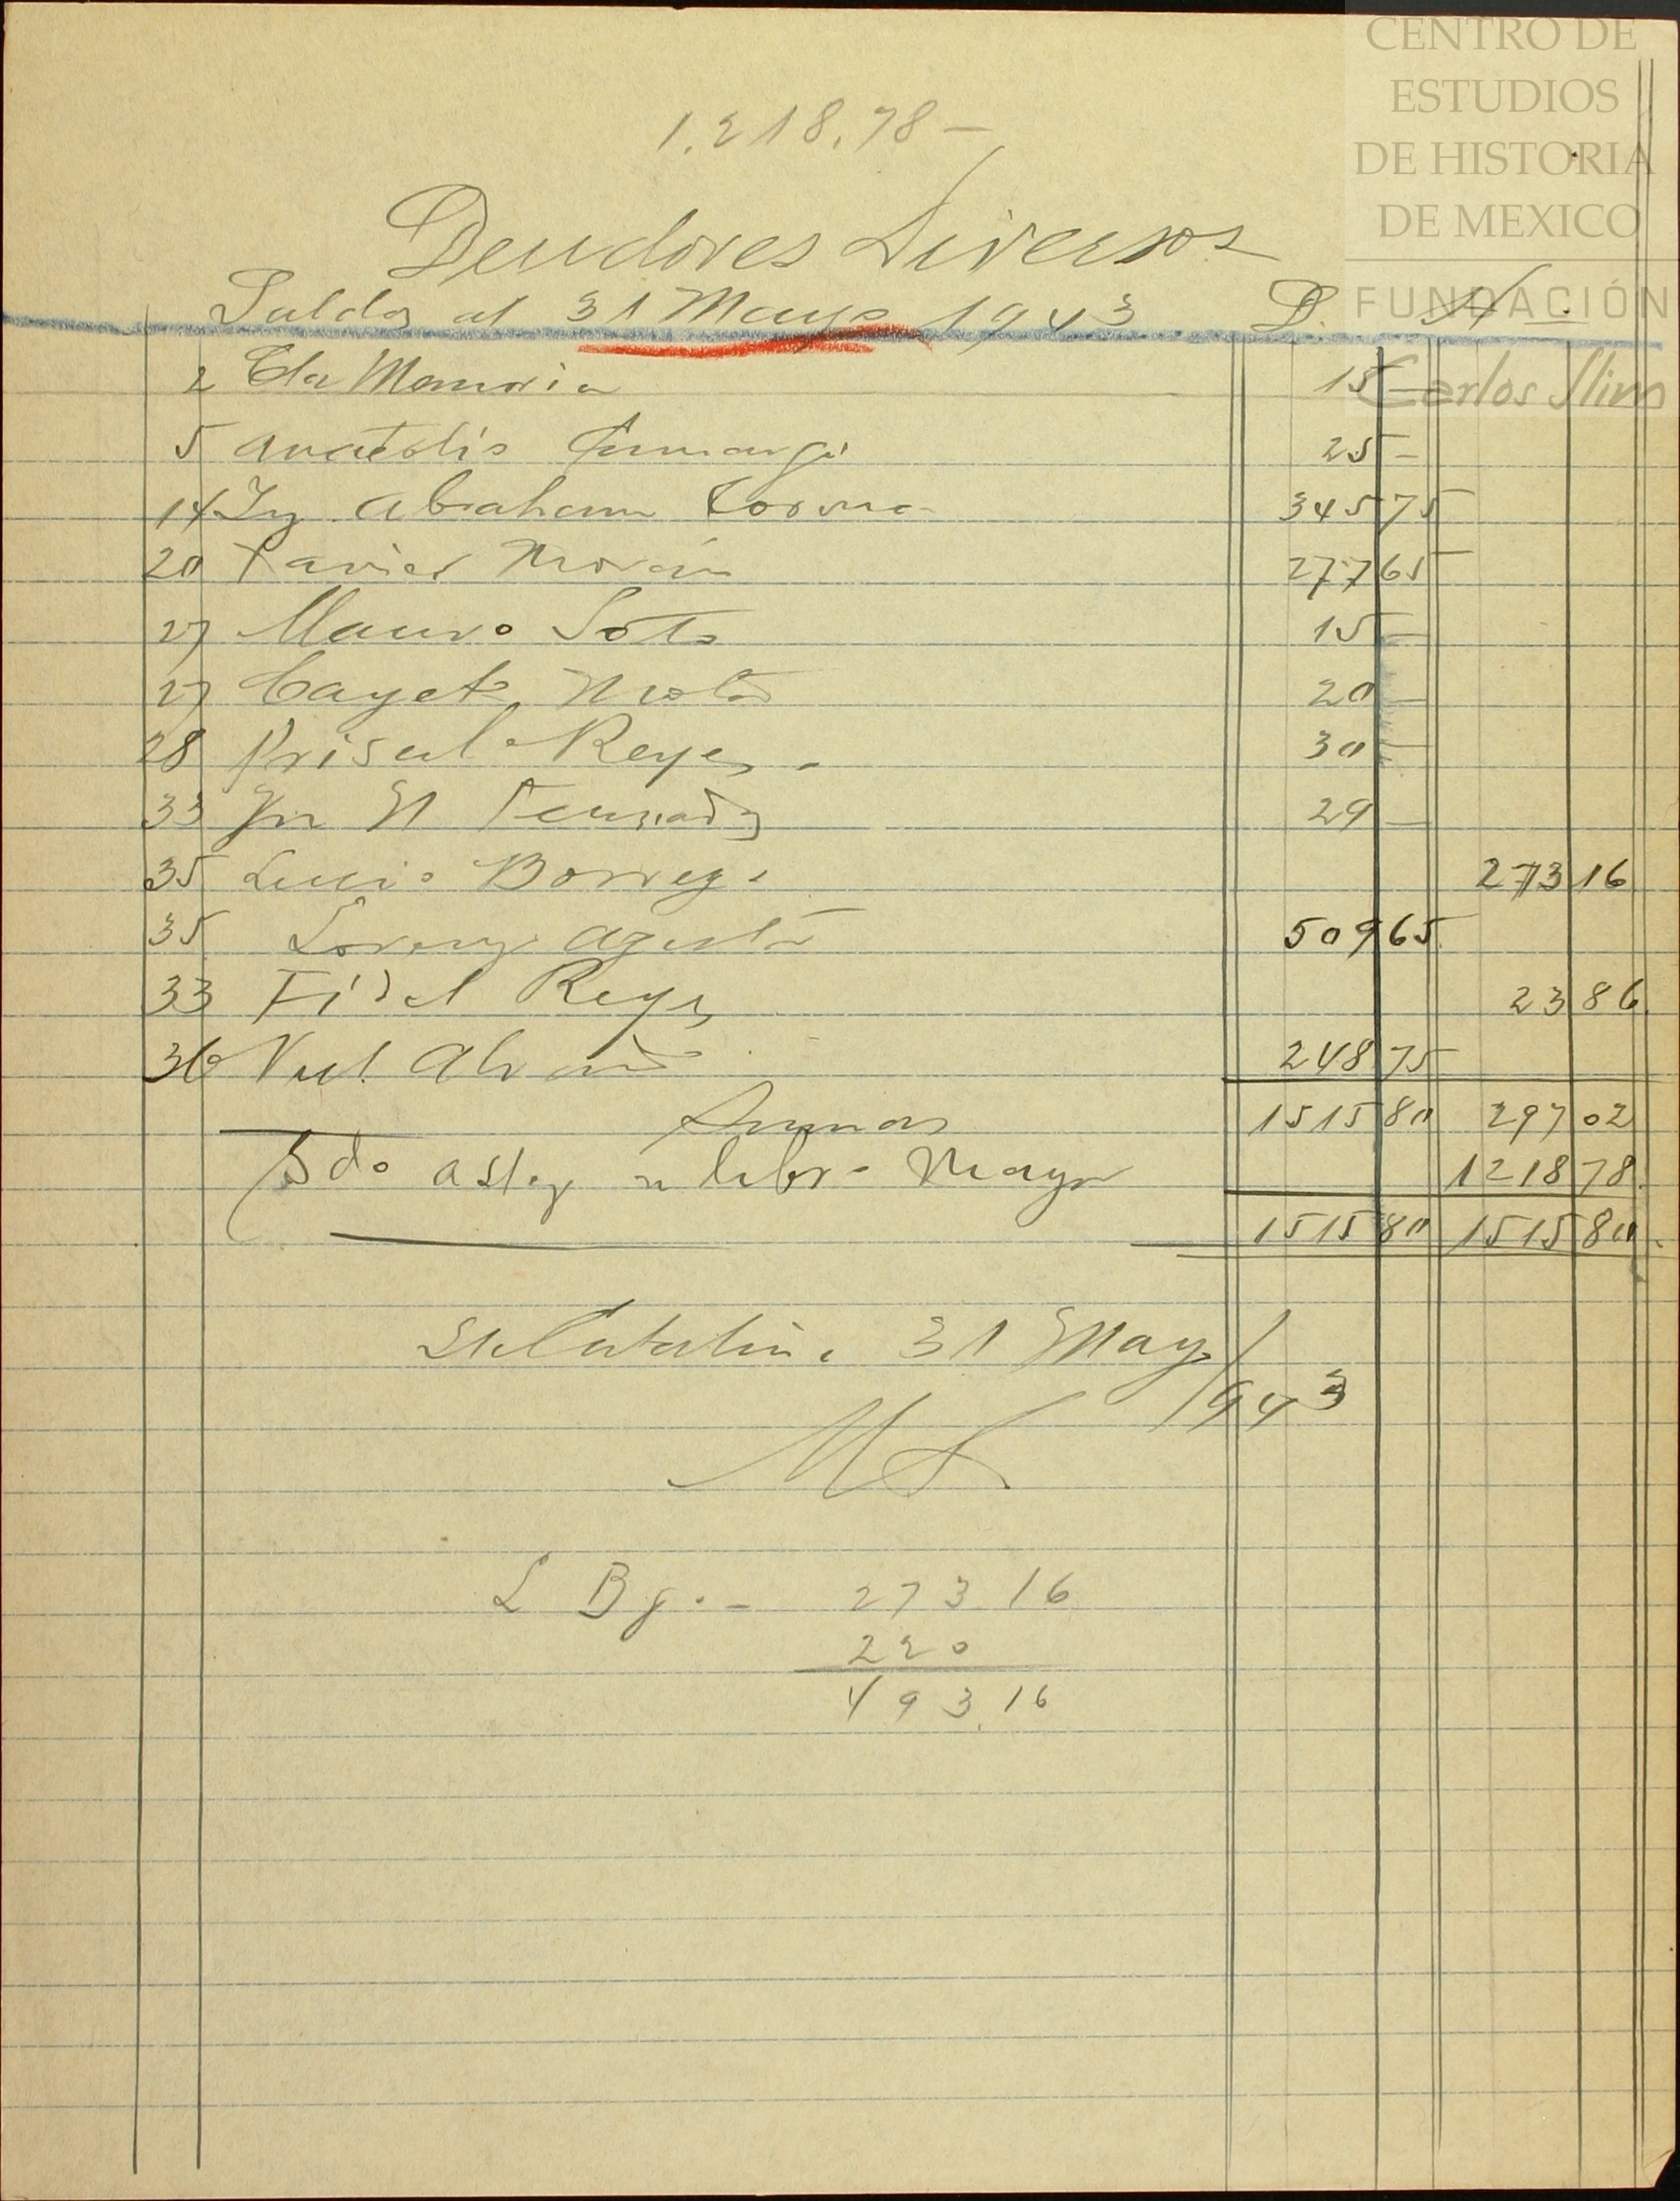 CENTRO DE
ESTUDIOS
DE HISTORIA
DE MEXICO
FUNDACIÓN
Carlos Slim
1.218.78 —
Deudores Diversos
Saldos al 31 Mayo 1943 D. H
2 Cta Memoria 15 —
5 Anatolio 25 —
14 Ig Abraham 345 75
20 Xavier Morán 277 65
27 Mauro Soto 15 —
27 Cayet Mota 20 —
28 Priscil Reyes 30 —
33 29 —
35 Lucio Borrego 273 16
35 Lorenzo 509 65
33 Fidel Reyes 23 86
36 248 75
Sumas 1515 80 297 02
Sdo libro Mayor 1218 78
1515 80 1515 80
31 May/
1943
L Bg. — 273 16
220
493.16